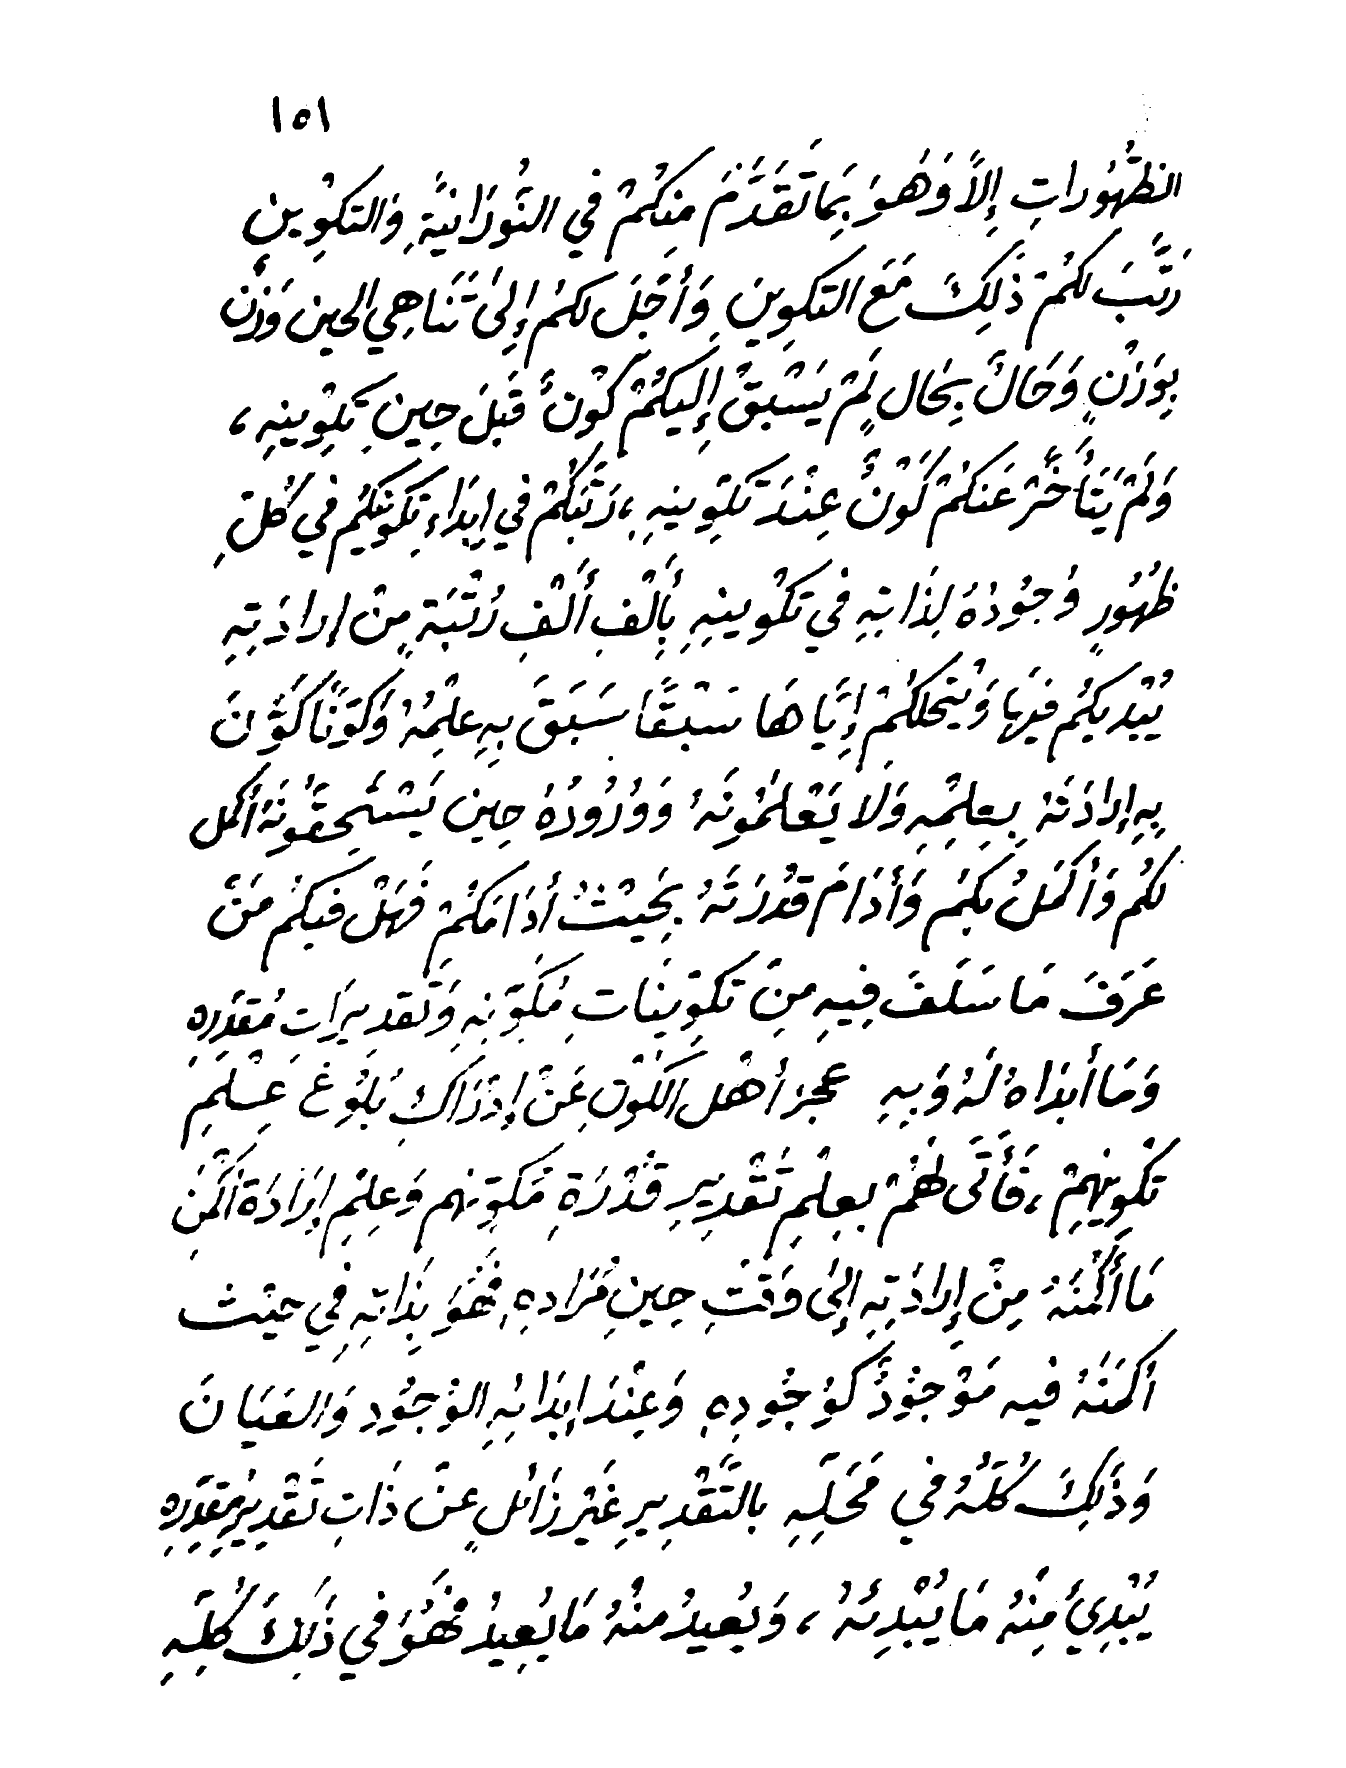 ١٥١
الظُّهُورَاتِ إِلاَّ وَهُوَ بِمَا تَقَدَّمَ مِنكُمْ في النُّورَانِيَّةِ وَالتكوِينِ
رَتَّبَ لكُمْ ذَلِكَ مَعَ التكوِينِ وَأَجَلَ لكُمْ إِلىٰ تَنَاهِي الحين وَزْنٌ
بِوَزْنٍ وَحَالٌ بِحَالٍ لَمْ يَسْبِقْ إِليكُمْ كَوْنٌ قَبلَ حِينِ تكْوِينِهِ ،
وَلَمْ يَتَأَخَّرْ عَنكُمْ كَوْنٌ عِنْدَ تَكْوِينِهِ ، رَتَّبَكُمْ في اِبدَاءِ تكَوُّنِكُمْ في كُلّ
ظُهُورٍ وُجُودُهُ لِذَاتِهِ في تَكْوِينِهِ بِأَلْفِ أَلْفِ رُتْبَةٍ مِنْ إرادَتِهِ
يُبْدِيكُم فيهَا وَيَنْحلكُمْ إِيَّاهَا سَبْقًا سَبَقَ بِهِ عِلْمُهُ وَكَوْنًا كَوَّنَ
بِهِ إرادَتَهُ بِعِلْمِهِ وَلاَ يَعْلَمُونَهُ وَوُرُودُهُ حِين يَسْتَحِقُّونَهُ أكمل
لكُم وَأَكمَلُ بكُم وَأَدَامَ قدْرَتَهُ بِحَيْثُ أَدَامَكُمْ فَهَلْ فيكُم مَنْ
عَرَفَ مَا سَلَفَ فِيهِ مِنْ تَكوِينَاتِ مُكَوِّنِهِ وَتَقدِيرَاتِ مُقَدِّرِهِ
وَمَا أَبدَاهُ لَهُ وَبِهِ عجز أَهْل الكَوْنِ عَنْ إِدْرَاكِ بُلُوغِ عِلْمِ
تكْوِينِهِمْ ، فَأَتَّى لَهُمْ بِعِلْمِ تَقْدِيرِ قُدْرَةِ مُكَوِّنِهِم وَعِلْمِ إِرَادَةِ أَكْمَنَ
مَا أَكْمَنَهُ مِنْ إِرادَتِهِ إِلىٰ وَقْتِ حِينِ مُرَادِهِ فَهُوَ بِذَاتِهِ فِي حيْث
أَكمَنَهُ فيه مَوْجُودٌ كَوُجُودِهِ وَعِنْدَ إبدَائِهِ الوُجُودِ وَالعَيَانَ
وَذَلِكَ كُلَّهُ في مَحَلِّهِ بالتَّقْدِيرِ غَيْر زَائلٍ عنْ ذَاتِ تَقْدِيرِ مُقَدِّرِهِ
يُبْدِيُ مِنْهُ مَا يُبْدِئهُ ، وَيُعيدُ منْهُ مَا يُعِيدُ فَهُوَ في ذَلِكَ كُلِّهِ